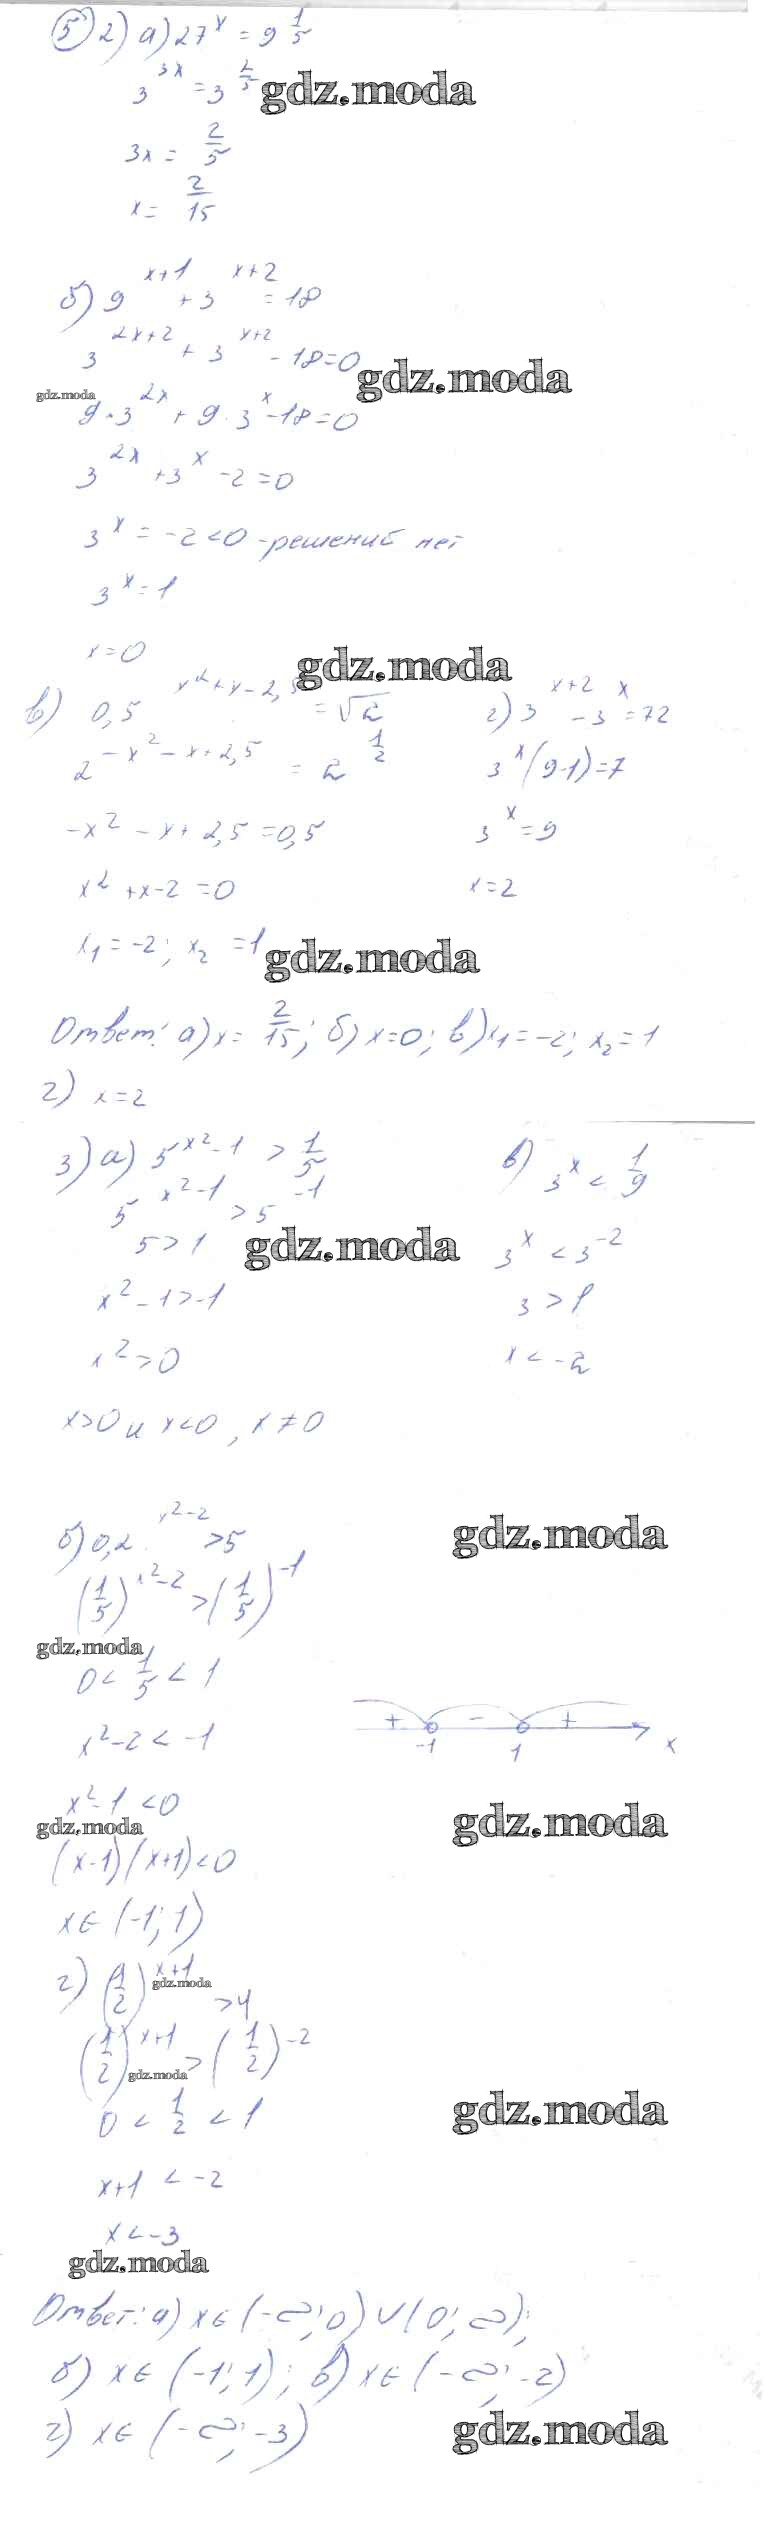 5 2) а) 27^x = 9^(1/5)
3^(3x) = 3^(2/5)
gdz.moda
3x = 2/5
x = 2/15
б) 9^(x+1) + 3^(x+2) = 18
3^(2x+2) + 3^(x+2) - 18 = 0
gdz.moda
gdz.moda
9·3^(2x) + 9·3^x - 18 = 0
3^(2x) + 3^x - 2 = 0
3^x = -2 < 0 - решений нет
3^x = 1
x = 0
gdz.moda
в) 0,5^(x²+x-2,5) = √2
2^(-x²-x+2,5) = 2^(1/2)
-x² - x + 2,5 = 0,5
x² + x - 2 = 0
x₁ = -2; x₂ = 1
г) 3^(x+2) - 3^x = 72
3^x(9-1) = 7
3^x = 9
x = 2
gdz.moda
Ответ: а) x = 2/15; б) x = 0; в) x₁ = -2; x₂ = 1
г) x = 2
3) а) 5^(x²-1) > 1/5
5^(x²-1) > 5^(-1)
5 > 1
gdz.moda
x² - 1 > -1
x² > 0
x > 0 и x < 0, x ≠ 0
в) 3^x < 1/9
3^x < 3^(-2)
3 > 1
x < -2
б) 0,2^(x²-2) > 5
gdz.moda
(1/5)^(x²-2) > (1/5)^(-1)
gdz.moda
0 < 1/5 < 1
x² - 2 < -1
+ - +
-1 1 x
x² - 1 < 0
gdz.moda
gdz.moda
(x-1)(x+1) < 0
x ∈ (-1; 1)
г) (1/2)^(x+1) > 4
gdz.moda
(1/2)^(x+1) > (1/2)^(-2)
gdz.moda
0 < 1/2 < 1
gdz.moda
x + 1 < -2
x < -3
gdz.moda
Ответ: а) x ∈ (-∞; 0) ∪ (0; ∞);
б) x ∈ (-1; 1); в) x ∈ (-∞; -2)
г) x ∈ (-∞; -3)
gdz.moda